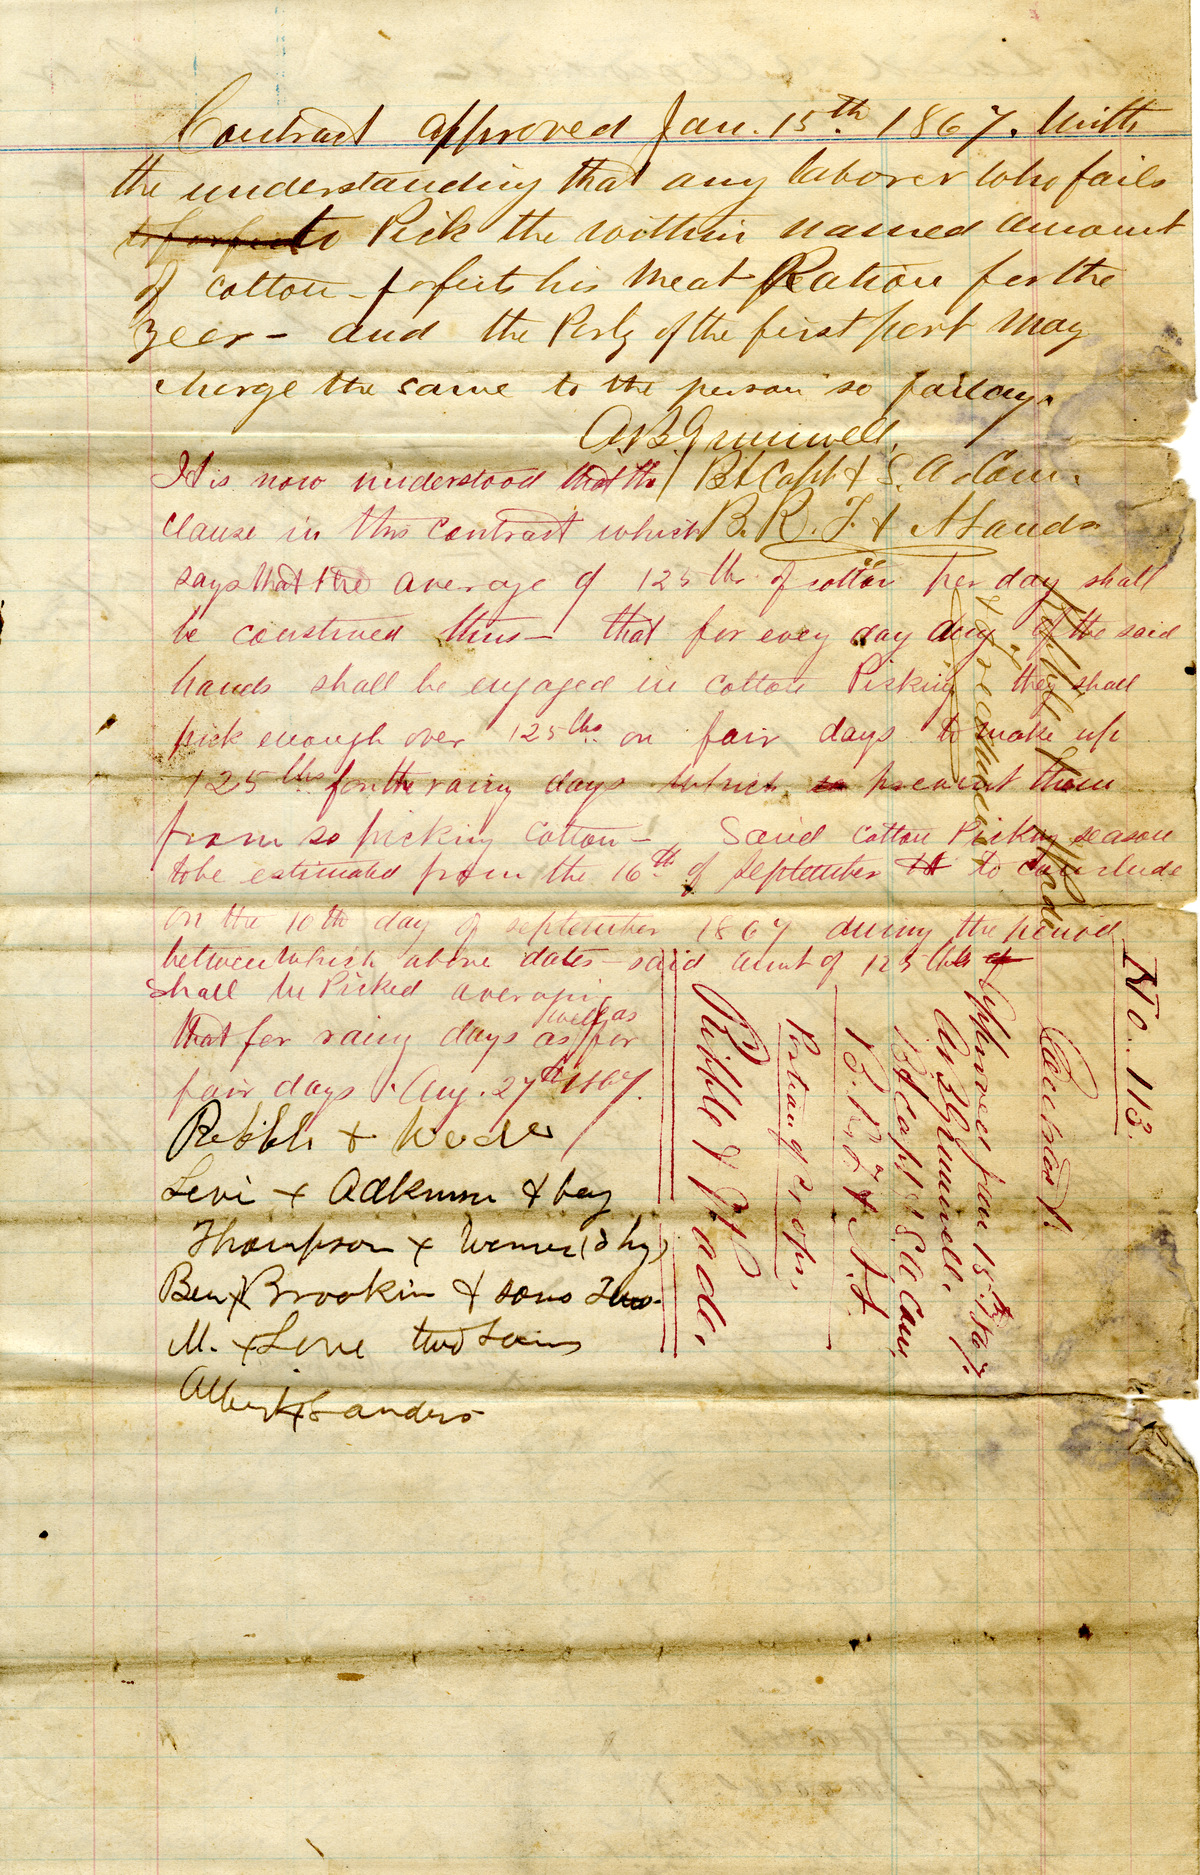 Contract approved Jan. 15th 1867. With
the understanding that any laborer who fails
to Pick the within named amount
of cotton - forfeits his meat Ration for the
year - and the Party of the first part may
charge the same to the person so failing.
A.B. Grunwell,
Bt Capt & S. A. Com.
B. R. F. & A Lands
It is now understood that the
clause in this contract which
says that the average of 125 lbs. of cotton per day shall
be construed thus - that for evey day any of the said
hands shall be engaged in cotton Picking they shall
pick enough over 125 lbs. on fair days to make up
125 lbs for the rainy days which prevent them
from so picking cotton - Said cotton Picking season
to be estimated from the 16th of September to conclude
on the 10th day of September 1867 during the period
between which above dates - said amt of 125 lbs
shall be Picked averaging
that for rainy days as well as for
fair days. Aug. 27th 1867.
Ribble & Wade
Levi x Adkinson & boy
Thompson x
Ben x Brookin & sons Two.
M. x Love two
Albert x Sanders
No. 113.
Contract.
Approved Jan 15th 1867.
A. B. Grunwell.
Bt Capt & S A Com,
B. R. F. & A. L.
Portion of Crops.
Ribble & Wade.
Ribble & Wade